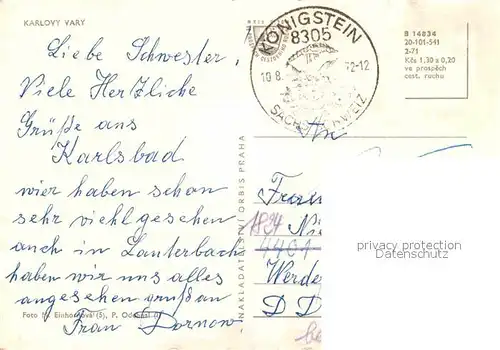 KARLOVY VARY
Liebe Schwester,
Viele Herzliche
Grüße aus
Karlsbad
wier haben schon
sehr viehl gesehen
auch in Lauterbach
haben wir uns alles
angesehen gruß an
Frau Dornow
Foto M. Einhornová (5), P.
NAKLADATELSTVÍ ORBIS PRAHA
KÖNIGSTEIN
8305
10.8. 72-12
B 14834
20-101-541
2-71
Kčs 1,30 a 0,20
ve prospěch
cest. ruchu
An
1894
4401
Werde
D D
privacy protection
Datenschutz